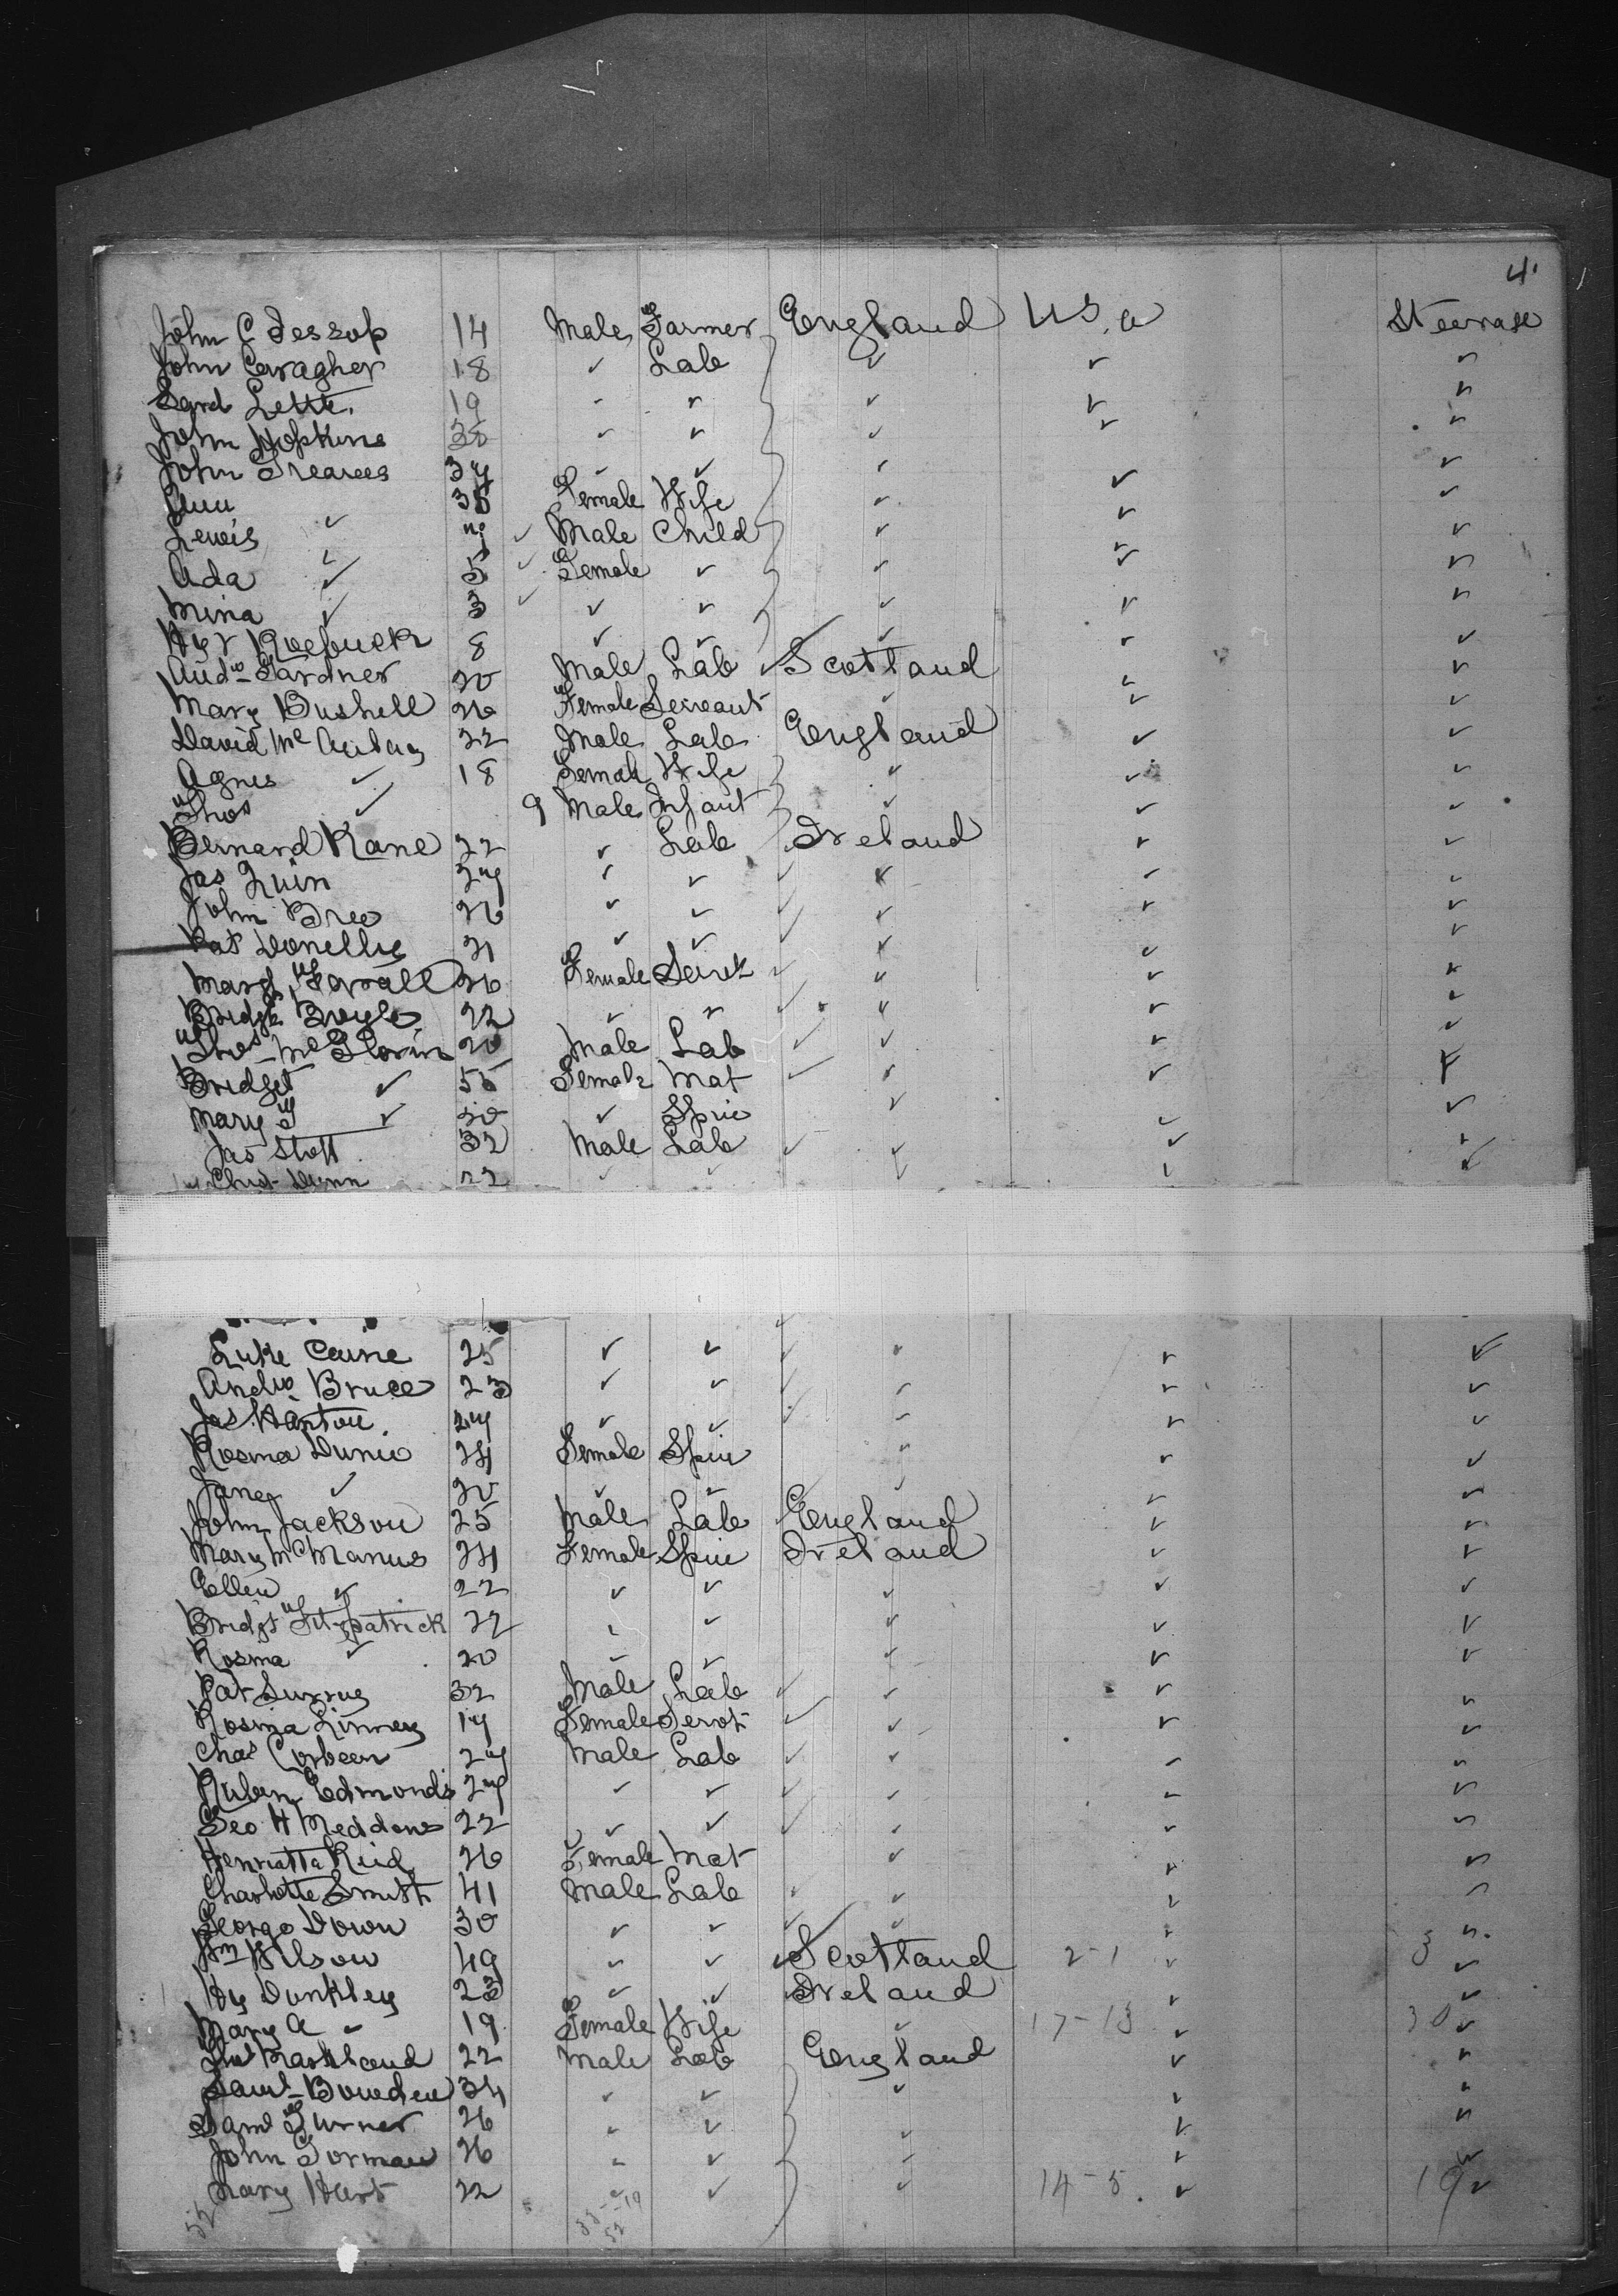 4
John C Jessop 14 Male Farmer England U S. a Steerage
John Caragher 18 ✓ Lab ✓ ✓ ✓
19 ✓ ✓ ✓ ✓ ✓
John Hopkins ✓ ✓ ✓ ✓ ✓
John Greaves 37 ✓ ✓ ✓ ✓ ✓
Ann 35 Female Wife ✓ ✓ ✓
Lewis ✓ 7 ✓ Male Child ✓ ✓ ✓
Ada ✓ 5 ✓ Female ✓ ✓ ✓ ✓
Mina ✓ 3 ✓ ✓ ✓ ✓ ✓ ✓
Roebuck 8 ✓ ✓ ✓ ✓ ✓
Andw Gardner 20 Male Lab ✓ Scotland ✓ ✓
Mary Bushell 26 Female Servant ✓ ✓ ✓
David Mc Aulay 22 Male Lab England ✓ ✓
Agnes ✓ 18 Female Wife ✓ ✓ ✓
Thos ✓ 9 Male Infant ✓ ✓ ✓
Bernard Kane 22 ✓ Lab Ireland ✓ ✓
Jas Quin 27 ✓ ✓ ✓ ✓ ✓ ✓
John Bree 26 ✓ ✓ ✓ ✓ ✓ ✓
Pat Donelly 21 ✓ ✓ ✓ ✓ ✓
Margt Farrall 26 Female Servt ✓ ✓ ✓ ✓
Bridgt Boyle 22 ✓ ✓ ✓ ✓ ✓ ✓
Thos Mc Glorin 20 Male Lab ✓ ✓ ✓ ✓
Bridget ✓ 55 Female Mat ✓ ✓ ✓ ✓
Mary ✓ 20 ✓ Spin ✓ ✓ ✓
Jas Stott 32 Male Lab ✓ ✓ ✓ ✓
Chrs Dunn 22 ✓ ✓ ✓ ✓ ✓
Luke Caine 25 ✓ ✓ ✓ ✓ ✓ ✓
Andw Bruce 23 ✓ ✓ ✓ ✓ ✓ ✓
Jas Hanton 27 ✓ ✓ ✓ ✓ ✓ ✓
Rosina Dunie 24 Female Spin ✓ ✓ ✓
Jane ✓ 20 ✓ ✓ ✓ ✓ ✓
John Jackson 25 Male Lab England ✓ ✓
Mary Mc Manus 24 Female Spin Ireland ✓ ✓
Ellen ✓ 22 ✓ ✓ ✓ ✓ ✓
Bridgt Fitzpatrick 22 ✓ ✓ ✓ ✓ ✓
Rosina ✓ 20 ✓ ✓ ✓ ✓ ✓
Pat 32 Male Lab ✓ ✓ ✓ ✓
Rosina Linney 17 Female Servt ✓ ✓ ✓ ✓
Chas Corbeen 27 Male Lab ✓ ✓ ✓ ✓
Ruben Edmonds 27 ✓ ✓ ✓ ✓ ✓ ✓
Geo H Meddows 22 ✓ ✓ ✓ ✓ ✓ ✓
Henriatta Reid 26 Female Mat ✓ ✓ ✓
Charlotte Smith 41 Male Lab ✓ ✓ ✓ ✓
George Down 30 ✓ ✓ ✓ ✓ ✓ ✓
Wm Wilson 49 ✓ ✓ ✓ Scotland 2-1 ✓ 3 ✓
Hy Dunkley 23 ✓ ✓ Ireland ✓ ✓
Mary A ✓ 19 Female Wife ✓ 17-13 ✓ 30 ✓
22 Male Lab England ✓ ✓
Saml Bowden 34 ✓ ✓ ✓ ✓ ✓
Saml Turner 26 ✓ ✓ ✓ ✓ ✓
John Gorman 26 ✓ ✓ ✓ ✓ ✓
Mary Hart 22 ✓ ✓ ✓ 14-5. ✓ 19 ✓
52